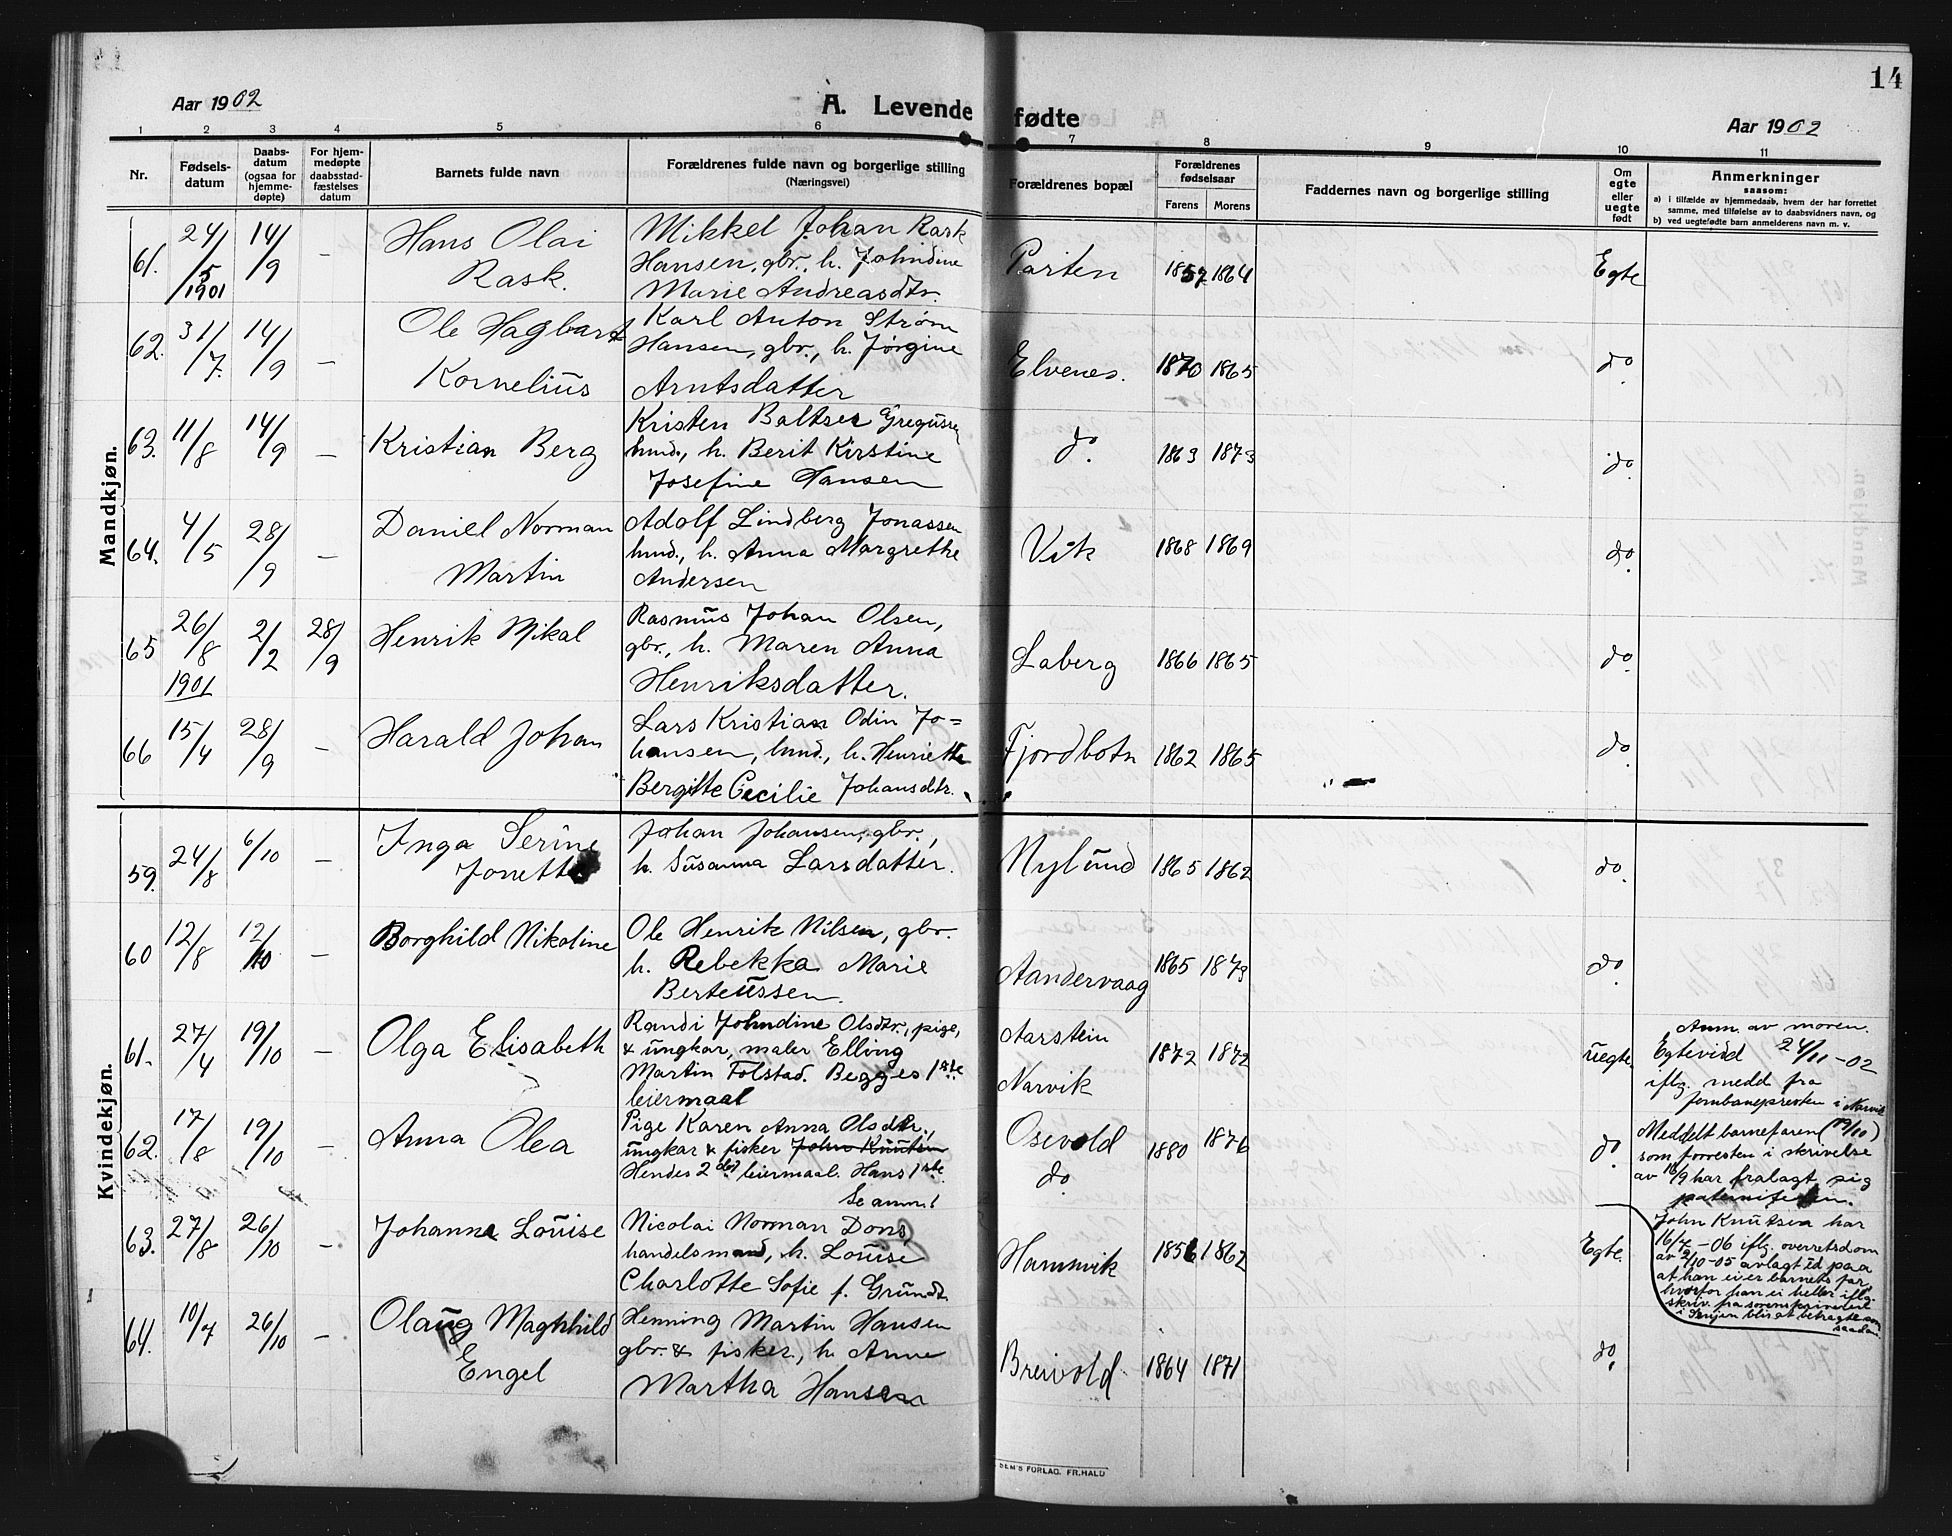 14
Aar 1902
A. Levende fødte
Aar 1902
1 2 3 4 5 6 7 8 9 10 11
Nr.
Fødsels-
datum
Daabs-
datum
(ogsaa for
hjemme-
døpte)
For hjem-
medøpte
daabsstad-
fæstelses
datum
Barnets fulde navn
Forældrenes fulde navn og borgerlige stilling
(Næringsvei)
Forældrenes bopæl
Forældrenes
fødselsaar
Farens Morens
Faddernes navn og borgerlige stilling
Om
egte
eller
uegte
født
Anmerkninger
saasom:
a) i tilfælde av hjemmedaab, hvem der har forrettet
samme, med tilføielse av to daabsvidners navn, og
b) ved uegtefødte barn anmelderens navn m. v.
Mandkjøn.
61. 24/5 1901 14/9 — Hans Olai
Rask.
Mikkel Johan Rask
Hansen, gbr., h. Johndine
Marie Andreasdtr.
Parten 1857 1864 Egte
62. 31/7. 14/9 — Ole Hagbart
Kornelius
Karl Anton Strøm
Hansen, gbr., h. Jørgine
Arntsdatter
Elvenes. 1870 1865 do.
63. 11/8 14/9 — Kristian Berg
Kristen Baltser Gregusen
hmd., h. Berit Kirstine
Josefine Hansen
do. 1863 1873 do
64. 4/5 28/9 — Daniel Norman
Martin
Adolf Lindberg Jonassen
hmd., h. Anna Margrethe
Andersen
Vik 1868 1869 do.
65 26/8 1901 2/2 28/9 Henrik Mikal
Rasmus Johan Olsen,
gbr., h. Maren Anna
Henriksdatter.
Laberg 1866 1865 do.
66 15/4 28/9 — Harald Johan
Lars Kristian Odin Jo=
hansen, hmd., h. Henriette
Bergitte Cecilie Johansdtr.
Fjordbotn 1862 1865 do.
Kvindekjøn.
59. 24/8 6/10 — Inga Serine
Jonette
Johan Johansen, gbr.,
h. Susanna Larsdatter.
Nylund 1865 1862 do.
60 12/8 12/10 — Borghild Nikoline
Ole Henrik Nilsen, gbr.
h. Rebekka Marie
Berteussen.
Aandervaag 1865 1873 do.
61. 27/4 19/10 — Olga Elisabeth
Randi Johndine Olsdtr., pige,
& ungkar, maler Elling
Martin Folstad. Begges 1ste
leiermaal
Aarstein
Narvik
1872 1872 uegte.
Anm. av moren.
Egtevied 24/11-02
iflg. medd fra
jernbanepresten i Narvik
62. 17/8 19/10 — Anna Olea
Pige Karen Anna Olsdtr.,
ungkar & fisker John Knutsen
Hendes 2det leiermaal. Hans 1ste
Se anm!
Osevold
do.
1880 1876 do.
Meddelt barnefaren (19/10)
som forresten i skrivelse
av 16/9 har fralagt sig
paterniteten.
John Knutsen har
16/7-06 iflg. overretsdom
av 2/10-05 avlagt ed paa
at han ei er barnets far,
hvorfor han ei heller iflg.
skriv. fra sorenskriveren
i Senjen blir at betragte som
saadan.
63. 27/8 26/10 — Johanna Louise
Nicolai Norman Dons,
handelsmand, h. Louise
Charlotte Sofie f. Grundt.
Hamnvik 1856 1862 Egte.
64. 10/7 26/10 — Olaug Maghhild
Engel
Henning Martin Hansen
gbr. & fisker, h. Anne
Martha Hansen
Breivold 1864 1871 do.
FORLAG. FR.HALD